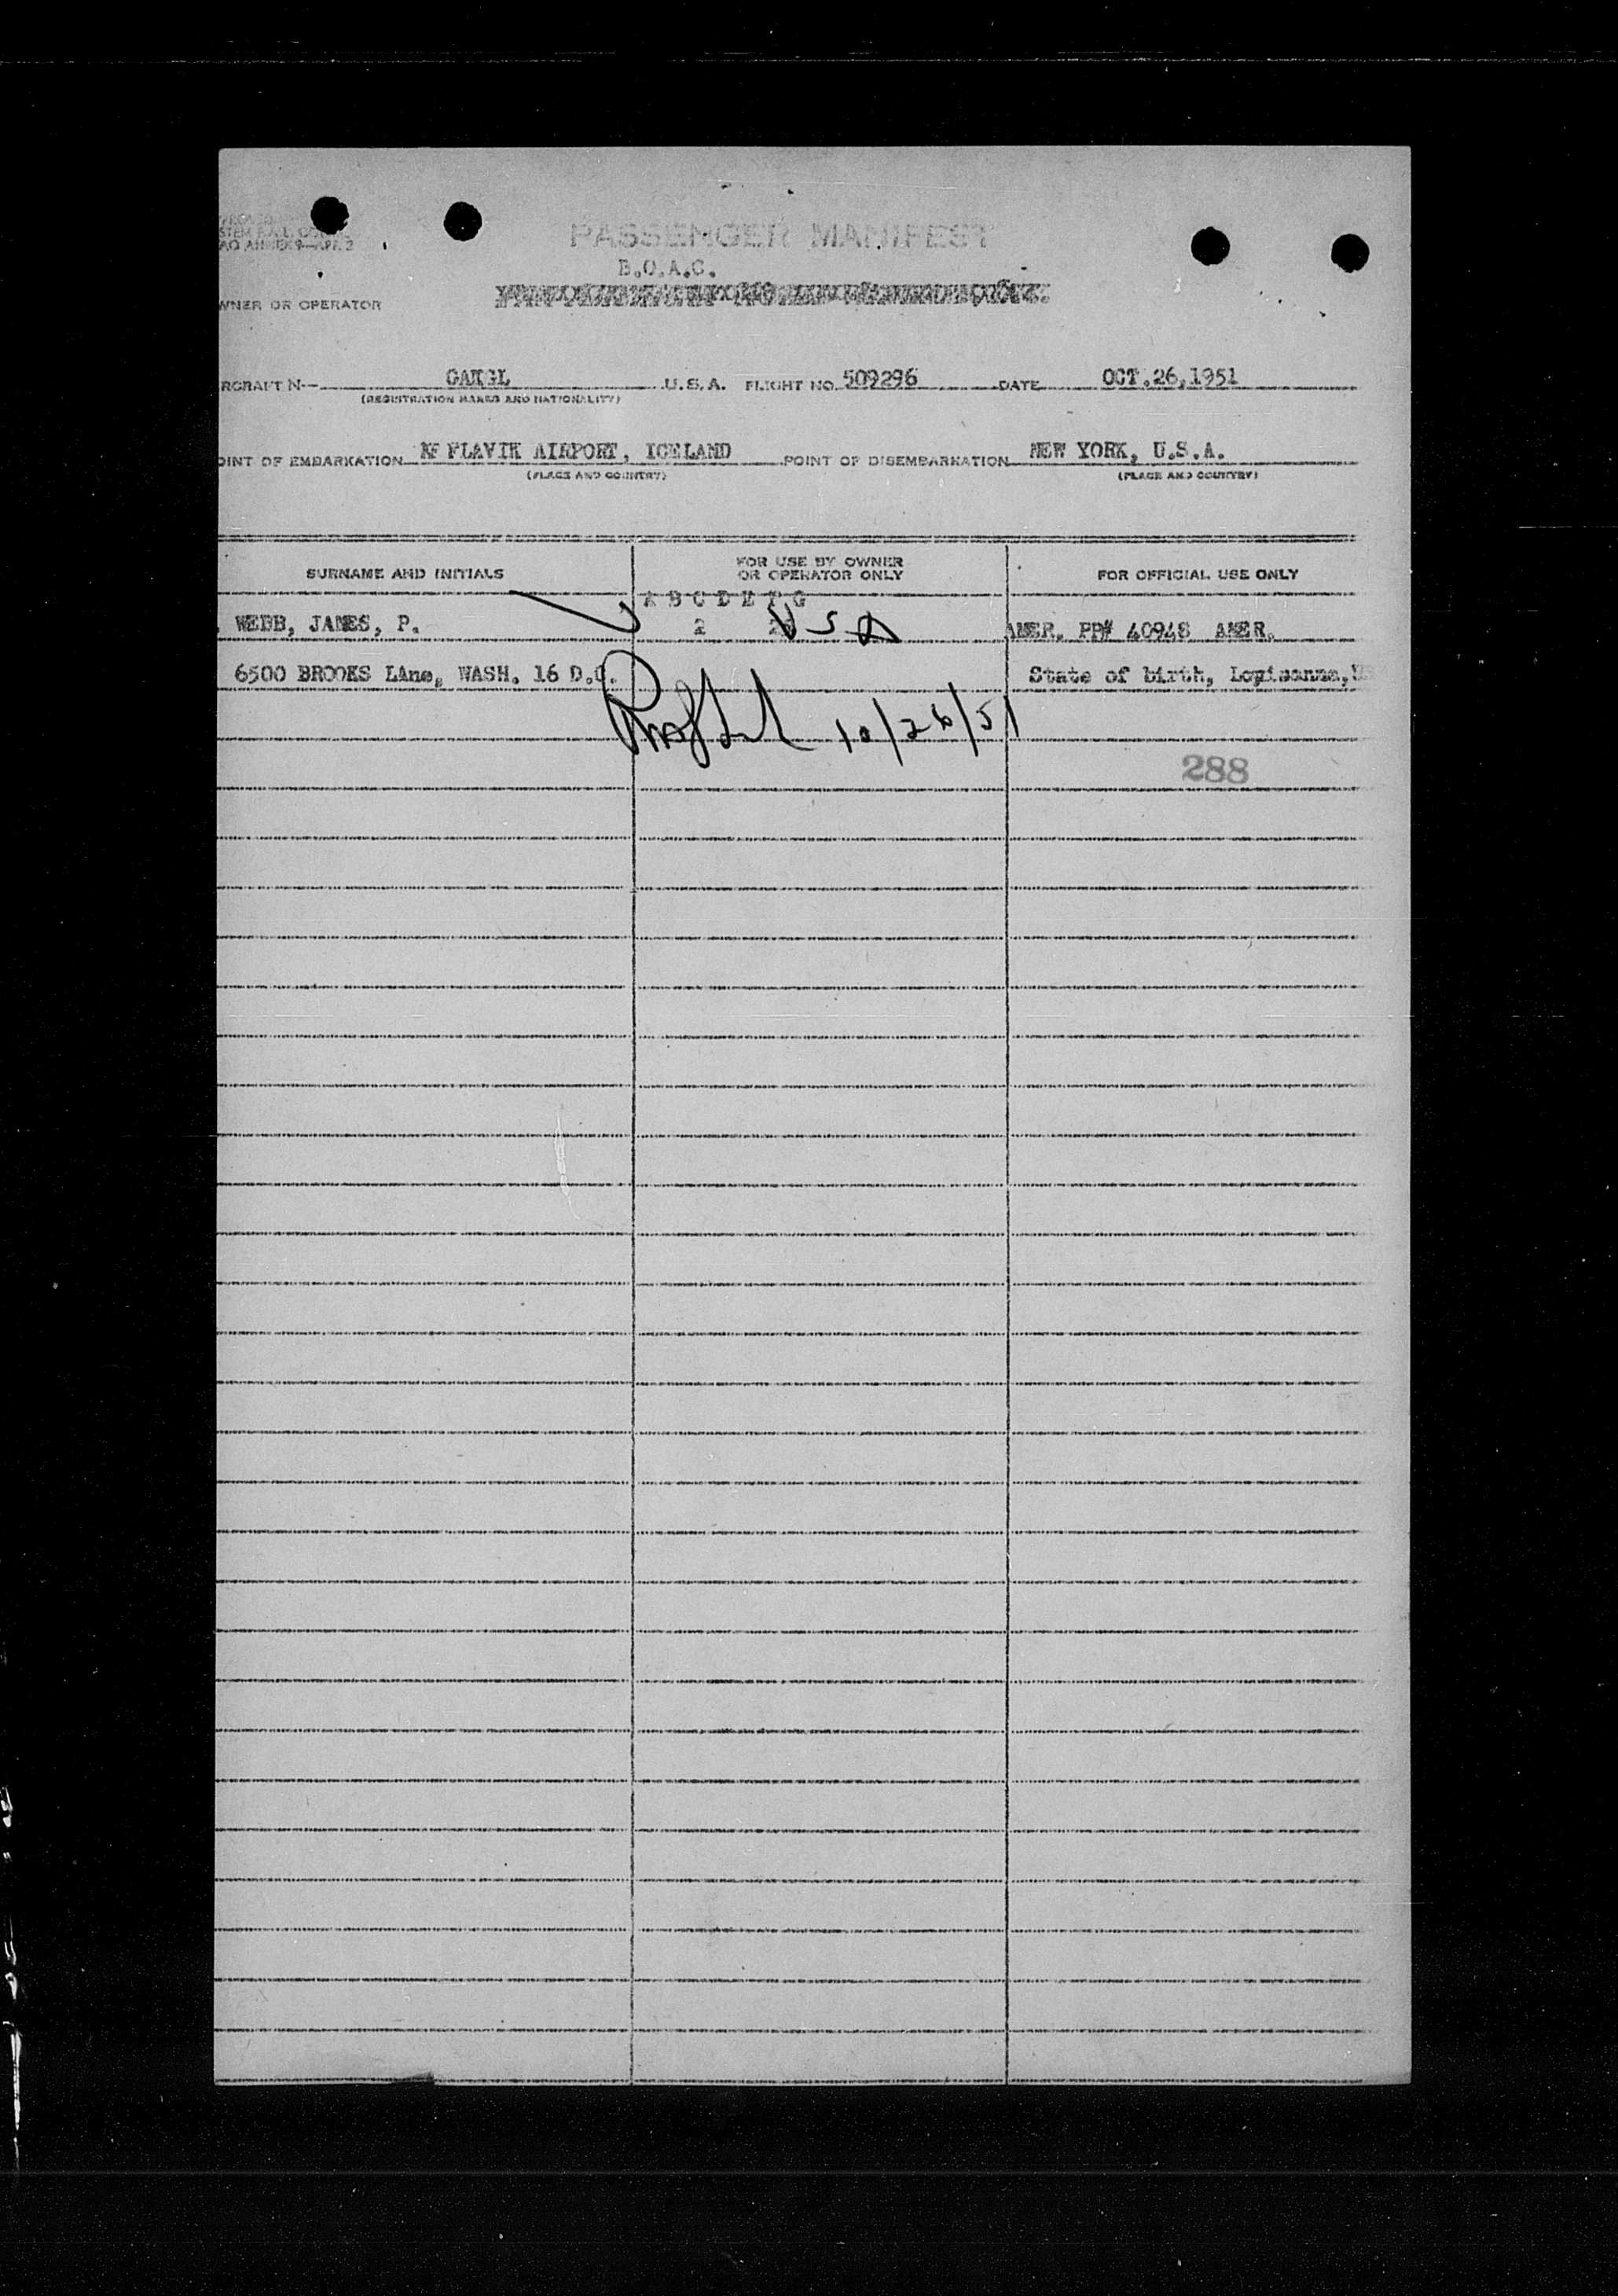 PASSENGER MANIFEST
B.O.A.C.
WNER OR OPERATOR
RCRAFT N— U.S.A. FLIGHT NO. 509296 DATE OCT.26,1951
(REGISTRATION MARKS AND NATIONALITY)
OINT OF EMBARKATION FLAVIK AIRPORT, ICELAND POINT OF DISEMBARKATION NEW YORK, U.S.A.
(PLACE AND COUNTRY) (PLACE AND COUNTRY)
SURNAME AND INITIALS FOR USE BY OWNER OR OPERATOR ONLY FOR OFFICIAL USE ONLY
A B C D E F G
WEBB, JAMES, P. 2 USA AMER. PP# 40948 AMER.
6500 BROOKS LAne, WASH. 16 D.C. State of birth,
10/26/51
288